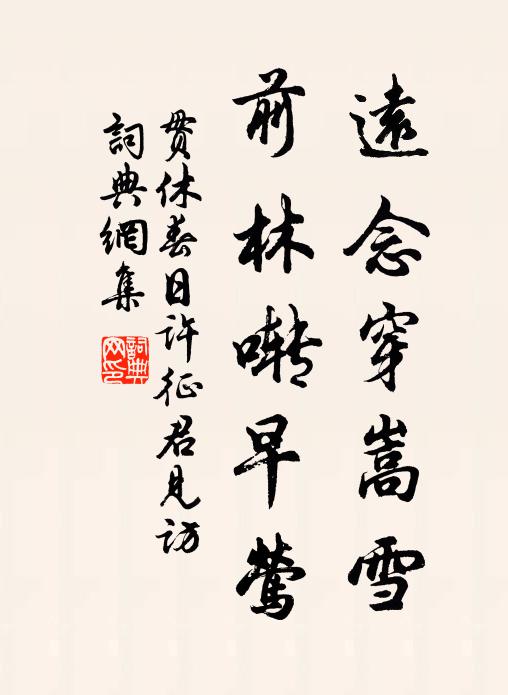 遠念穿嵩雪
前林囀早鶯
貫休春日许征君見访
詞典網集
詞典網印